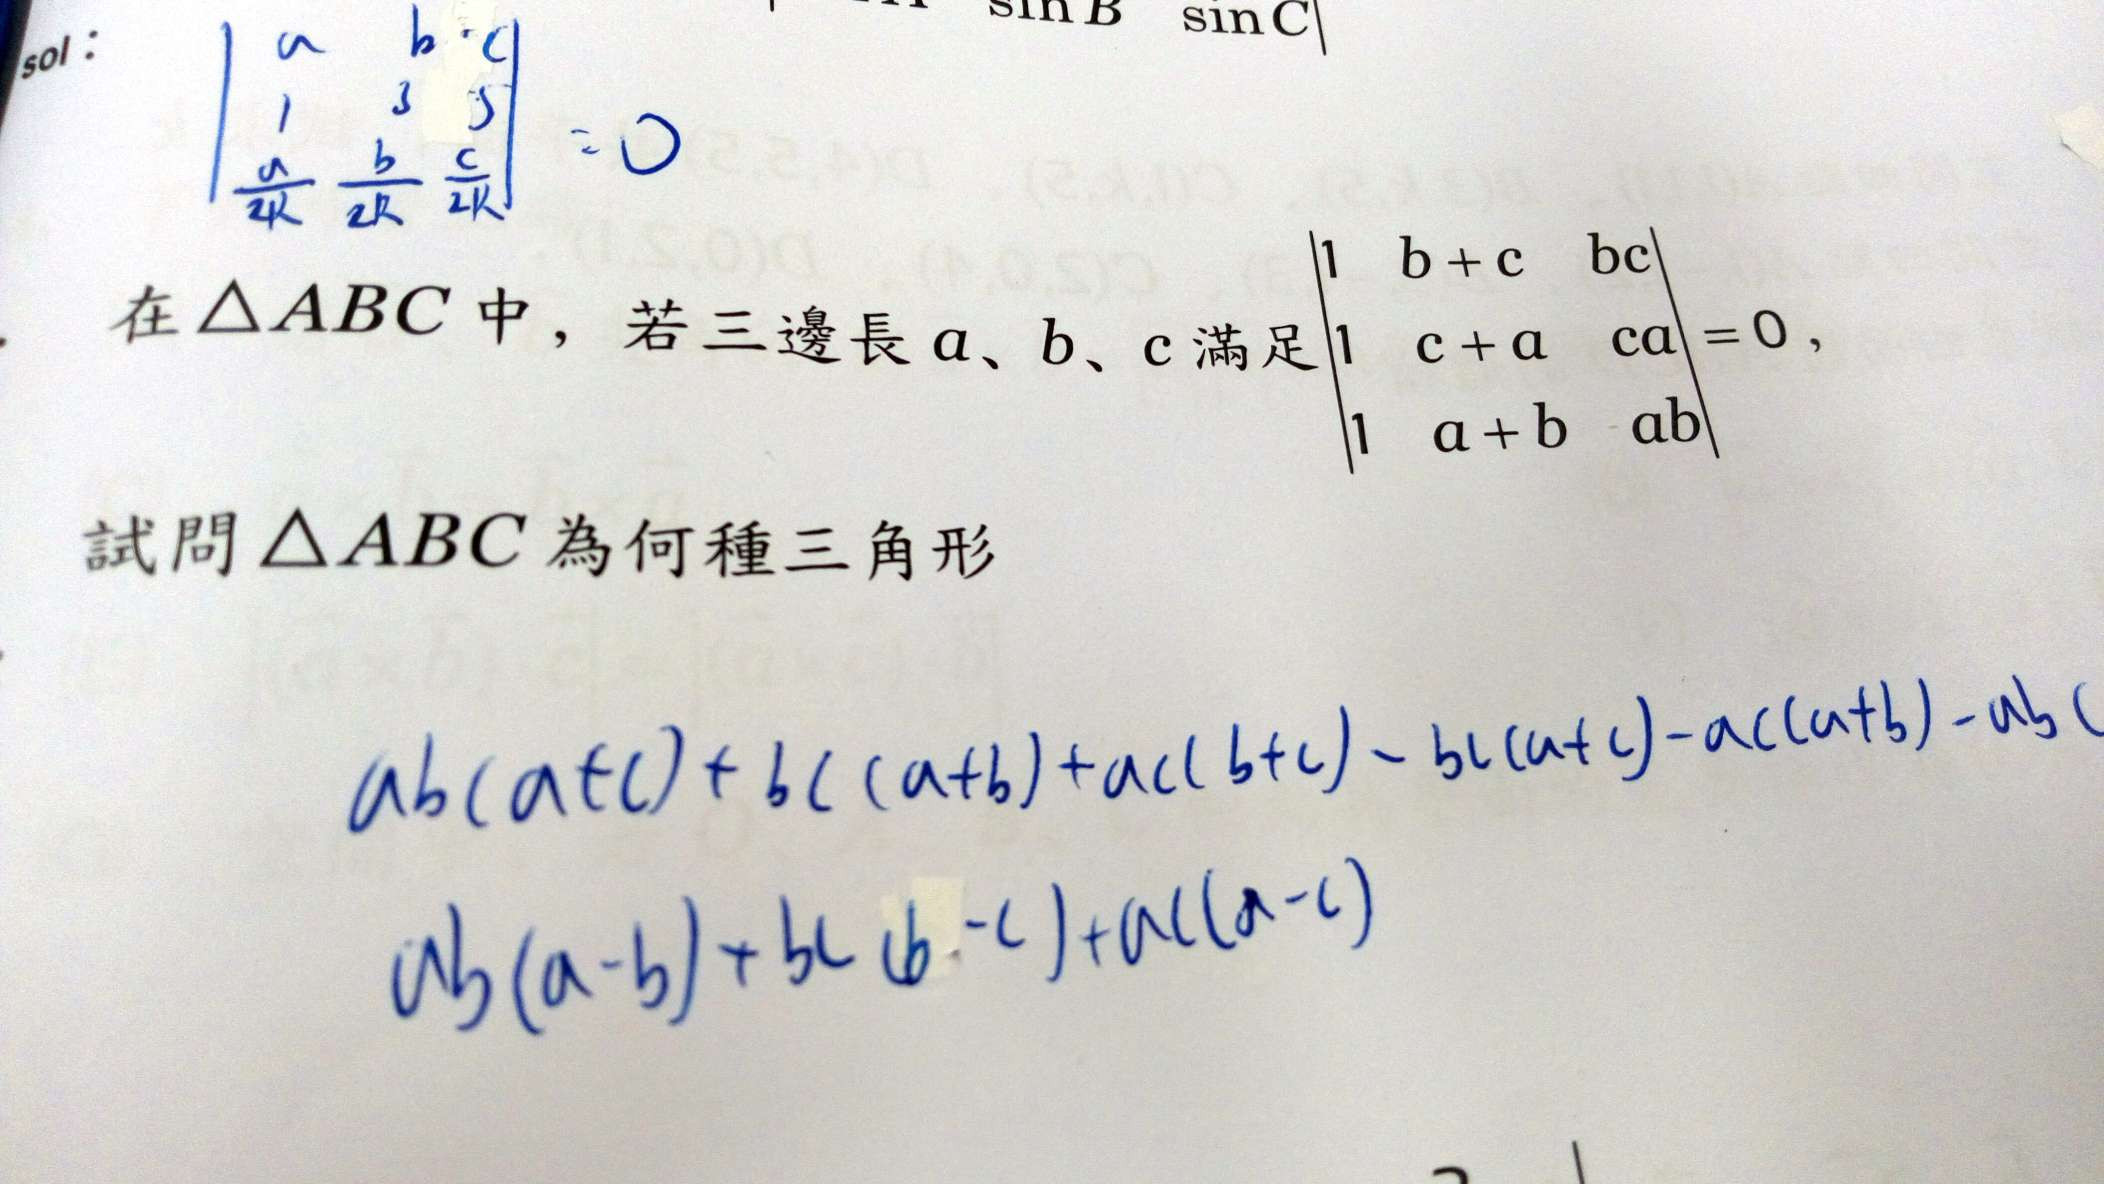 sin B sin C
sol :
a b c
1 3 5
a/2R b/2R c/2R
= 0
在△ABC中，若三邊長a、b、c滿足
1 b + c bc
1 c + a ca = 0，
1 a + b ab
試問△ABC為何種三角形
ab(a+c)+bc(a+b)+ac(b+c)-bc(a+c)-ac(a+b)-ab(
ab(a-b)+bc(b-c)+ac(a-c)